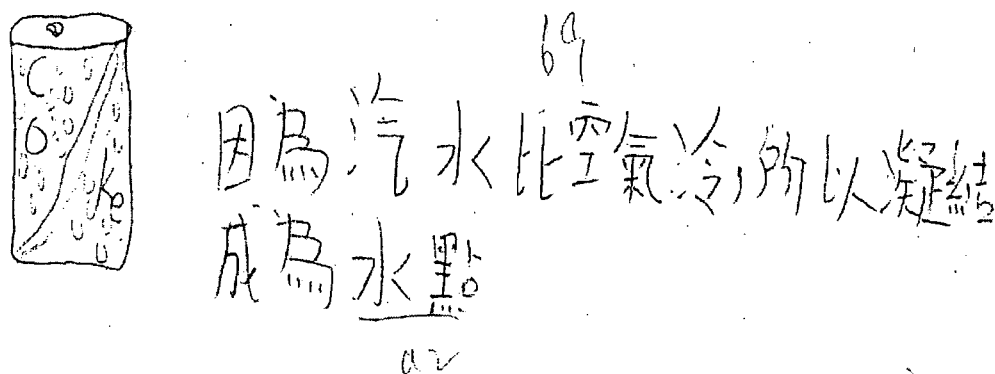 Coke
因為汽水比空氣冷,所以凝結
成為水點